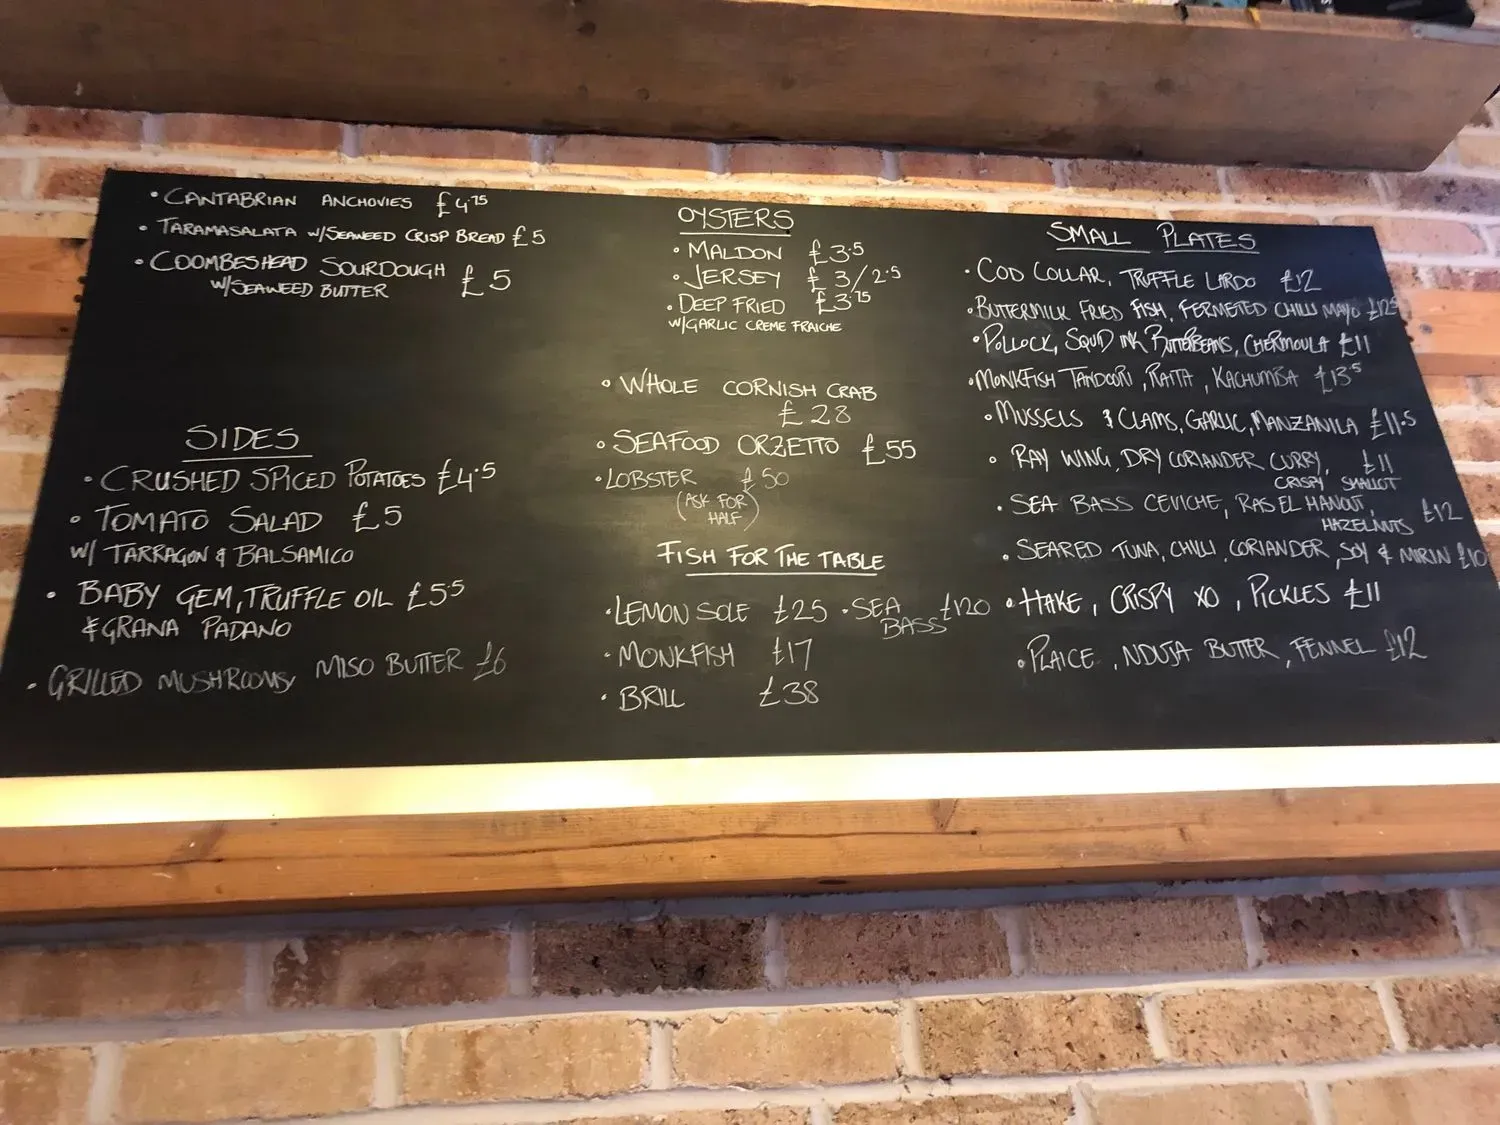 • CANTABRIAN ANCHOVIES £4.75
• TARAMASALATA W/SEAWEED CRISP BREAD £5
• COOMBESHEAD SOURDOUGH £5
W/SEAWEED BUTTER
SIDES
• CRUSHED SPICED POTATOES £4.5
• TOMATO SALAD £5
W/ TARRAGON & BALSAMICO
• BABY GEM, TRUFFLE OIL £5.5
& GRANA PADANO
• GRILLED MUSHROOMS, MISO BUTTER £6
OYSTERS
• MALDON £3.5
• JERSEY £3/2.5
• DEEP FRIED £3.75
W/GARLIC CREME FRAICHE
• WHOLE CORNISH CRAB
£28
• SEAFOOD ORZETTO £55
• LOBSTER £50
(ASK FOR
HALF)
FISH FOR THE TABLE
• LEMON SOLE £25 • SEA £120
BASS
• MONKFISH £17
• BRILL £38
SMALL PLATES
• COD COLLAR, TRUFFLE LARDO £12
• BUTTERMILK FRIED FISH, FERMETED CHILLI MAYO
• POLLOCK, SQUID INK BUTTERBEANS, CHERMOULA £11
• MONKFISH TANDOORI, RAITA, KACHUMBA £13.5
• MUSSELS & CLAMS, GARLIC, MANZANILA £11.5
• RAY WING, DRY CORIANDER CURRY, £11
CRISPY SHALLOT
• SEA BASS CEVICHE, RAS EL HANOUT, £12
HAZELNUTS
• SEARED TUNA, CHILLI, CORIANDER, SOY & MIRIN £10
• HAKE, CRISPY XO, PICKLES £11
• PLAICE, NDUJA BUTTER, FENNEL £12